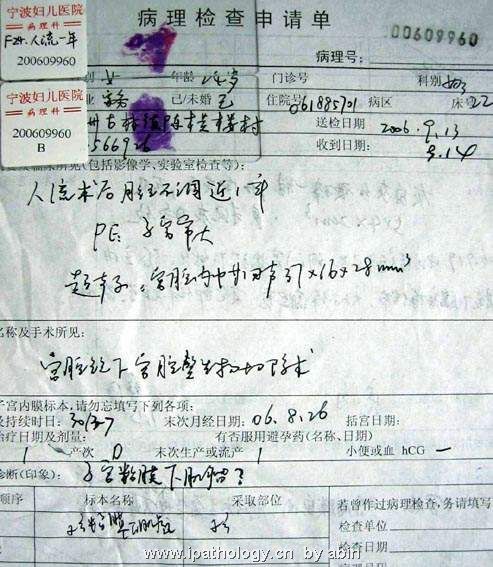 宁波妇儿医院
病理科
F24.人流一年
200609960
病理检查申请单
00609960
病理号:
女 年龄 24岁 门诊号 科别 妇
宁波妇儿医院
病理科
200609960
B
已/未婚 已 住院号 061885701 病区 床号 22
送检日期 2006.9.13
566926
收到日期: 9.14
(包括影像学、实验室检查等):
人流术后月经不调近1年
PE: 子宫常大
超声示:宫腔内中非回声37×16×28mm³
名称及手术所见:
宫腔镜下宫腔整生物切除术
子宫内膜标本,请勿忘填写下列各项:
及持续时日: 末次月经日期: 06.8.26 括宫日期:
治疗日期及剂量: 有否服用避孕药(名称、日期)
1 产次 0 末次生产或流产 1 小便或血 hCG —
诊断(印象): 子宫粘膜下肌瘤?
顺序 标本名称 采取部位 若曾作过病理检查,务请填写
检查单位
检查日期
www.ipathology.cn by abin